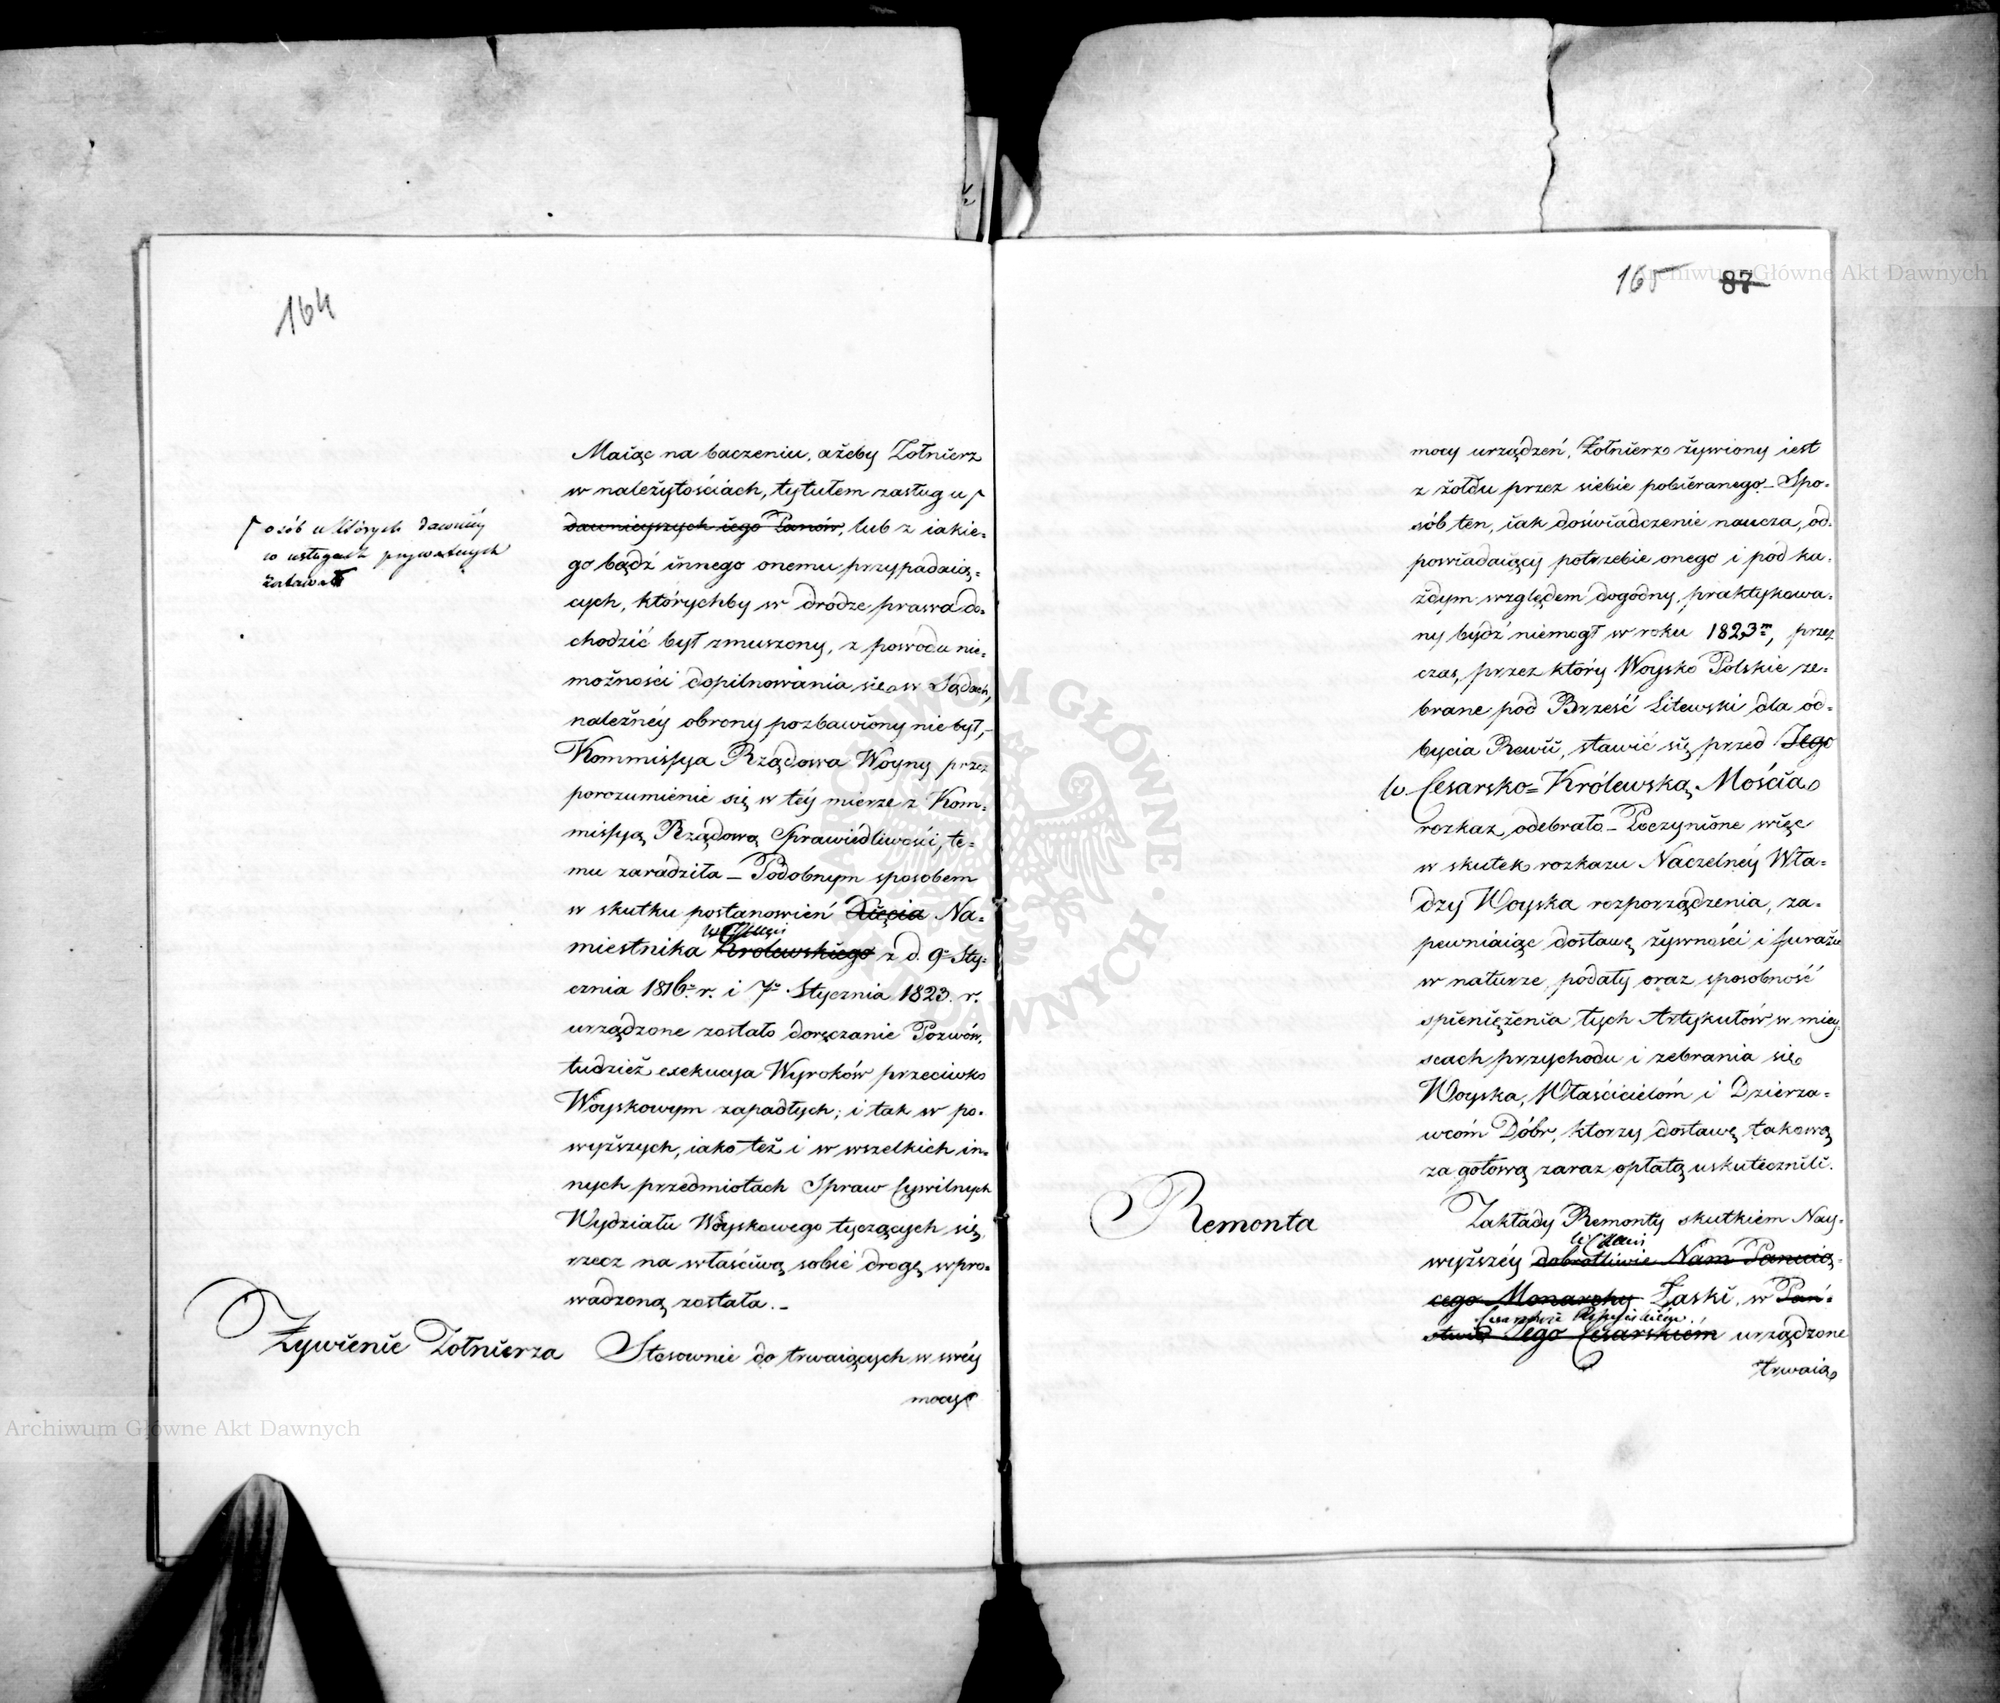 164
Maiąc na baczeniu, ażeby Żołnierz
w należytościach, tytułem zasług u
dawnieyszych iego Panów, lub z iakie-
go bądź innego onemu przypadaią-
cych, którychby w drodze prawa do-
chodzić był zmuszony, z powodu nie-
możności dopilnowania się w Sądach,
należnéy obrony pozbawiony nie był,
Kommissya Rządowa Woyny przez
porozumienie się w téy mierze z Kom-
missyą Rządową Sprawiedliwości, te-
mu zaradziła – Podobnym sposobem
w skutku postanowień Xięcia Na-
miestnika Królewskiego z d. 9º Sty-
cznia 1816. r. i 7º Stycznia 1823. r.
urządzone zostało doręczanie Pozwów,
tudzież exekucya Wyroków przeciwko
Woyskowym zapadłych; i tak w po-
wyższych, iako też i w wszelkich in-
nych przedmiotach Spraw Cywilnych
Wydziału Woyskowego tyczących się,
rzecz na właściwą sobie drogę wpro-
wadzoną została. –
osób u których dawniéy
w usługach prywatnych
Żywienie Żołnierza
Stosownie do trwaiących w swéy
mocy
165 87
mocy urządzeń, Żołnierz żywiony iest
z żołdu przez siebie pobieranego – Spo-
sób ten, iak doświadczenie naucza, od-
powiadaiący potrzebie onego i pod ka-
żdym względem dogodny, praktykowa-
ny bydź niemógł w roku 1823m, przez
czas, przez który Woysko Polskie ze-
brane pod Brześć Litewski dla od-
bycia Rewii, stawić się przed Jego
Cesarsko-Królewską Mością
rozkaz odebrało – Poczynione więc
w skutek rozkazu Naczelnéy Wła-
dzy Woyska rozporządzenia, za-
pewniaiąc dostawę żywności i furażu
w naturze, podały oraz sposobność
spieniężenia tych Artykułów w miey-
scach przychodu i zebrania się
Woyska, Właścicielóm i Dzierża-
wcóm Dóbr, którzy dostawę takową
za gotową zaraz opłatą uskutecznili.
Remonta
Zakłady Remonty skutkiem Nay-
wyższéy dobrotliwie Nam Panuią-
cego Monarchy Łaski, w Pań-
Cesarstwie Rossyiskiém
stwie Jego Cesarskiém urządzone
trwaią
Archiwum Główne Akt Dawnych
Archiwum Główne Akt Dawnych
ARCHIWUM GŁÓWNE AKT DAWNYCH